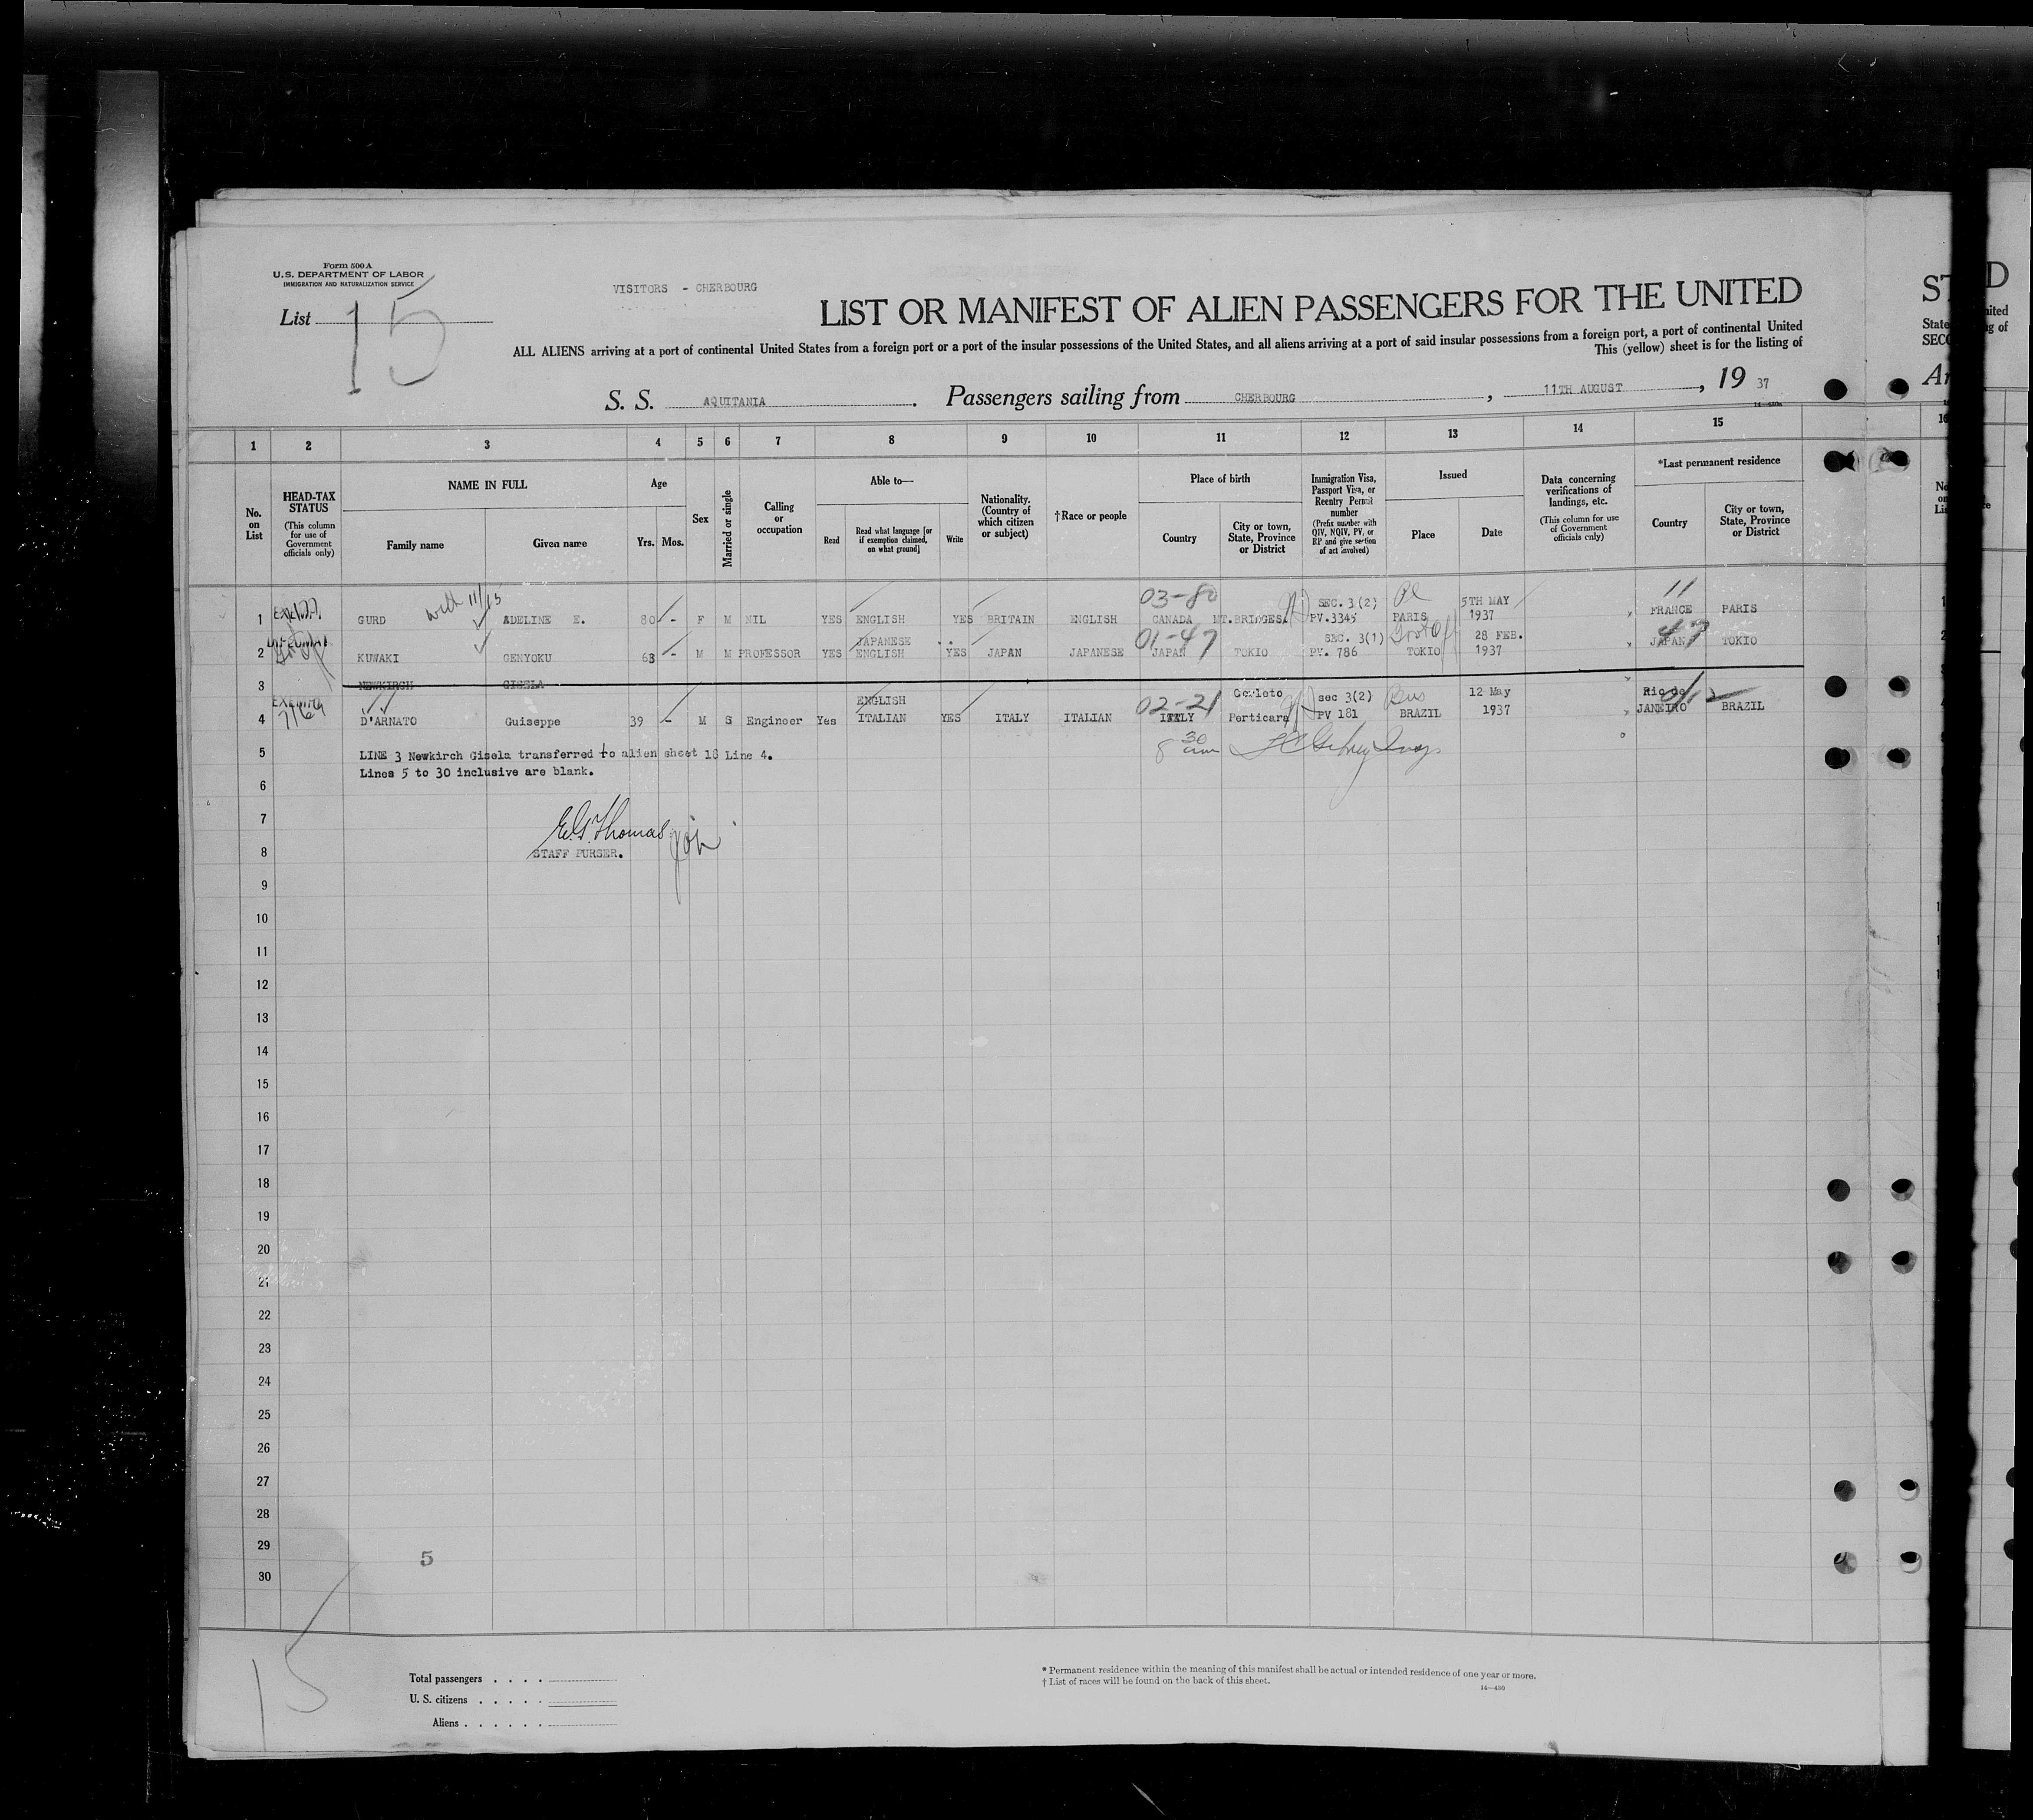 Form 500 A
U.S. DEPARTMENT OF LABOR
IMMIGRATION AND NATURALIZATION SERVICE
VISITORS - CHERBOURG
List 15
LIST OR MANIFEST OF ALIEN PASSENGERS FOR THE UNITED
ALL ALIENS arriving at a port of continental United States from a foreign port or a port of the insular possessions of the United States, and all aliens arriving at a port of said insular possessions from a foreign port, a port of continental United
This (yellow) sheet is for the listing of
S. S. AQUITANIA. Passengers sailing from CHERBOURG, 11TH AUGUST, 19 37
14—430a
1 2 3 4 5 6 7 8 9 10 11 12 13 14 15
No. on List
HEAD-TAX STATUS
(This column for use of Government officials only)
NAME IN FULL
Family name
Given name
Age
Yrs.
Mos.
Sex
Married or single
Calling or occupation
Able to—
Read
Read what language [or if exemption claimed, on what ground]
Write
Nationality. (Country of which citizen or subject)
†Race or people
Place of birth
Country
City or town, State, Province or District
Immigration Visa, Passport Visa, or Reentry Permit number
(Prefix number with QIV, NQIV, PV, or RP and give section of act involved)
Issued
Place
Date
Data concerning verifications of landings, etc.
(This column for use of Government officials only)
*Last permanent residence
Country
City or town, State, Province or District
with 11/15 03-80 SEC. 3(2) 5TH MAY 11
1 GURD ADELINE E. 80 - F M NIL YES ENGLISH YES BRITAIN ENGLISH CANADA MT.BRIDGES. PV.3345 PARIS 1937 FRANCE PARIS
DIPLOMAT JAPANESE 01-47 SEC. 3(1) 28 FEB. 47
2 KUWAKI GENYOKU 63 - M M PROFESSOR YES ENGLISH YES JAPAN JAPANESE JAPAN TOKIO PV. 786 TOKIO 1937 JAPAN TOKIO
3 NEWKIRCH GISELA
ENGLISH 02-21 sec 3(2) 12 May Rio de
4 D'ARNATO Guiseppe 39 - M S Engineer Yes ITALIAN YES ITALY ITALIAN ITALY Perticara PV 181 BRAZIL 1937 JANEIRO BRAZIL
5 LINE 3 Newkirch Gisela transferred to alien sheet 18 Line 4.
Lines 5 to 30 inclusive are blank.
6
7 E.G. Thomas
8 STAFF PURSER.
9
10
11
12
13
14
15
16
17
18
19
20
21
22
23
24
25
26
27
28
29
5
30
15
Total passengers
U. S. citizens
Aliens
* Permanent residence within the meaning of this manifest shall be actual or intended residence of one year or more.
† List of races will be found on the back of this sheet.
14—430